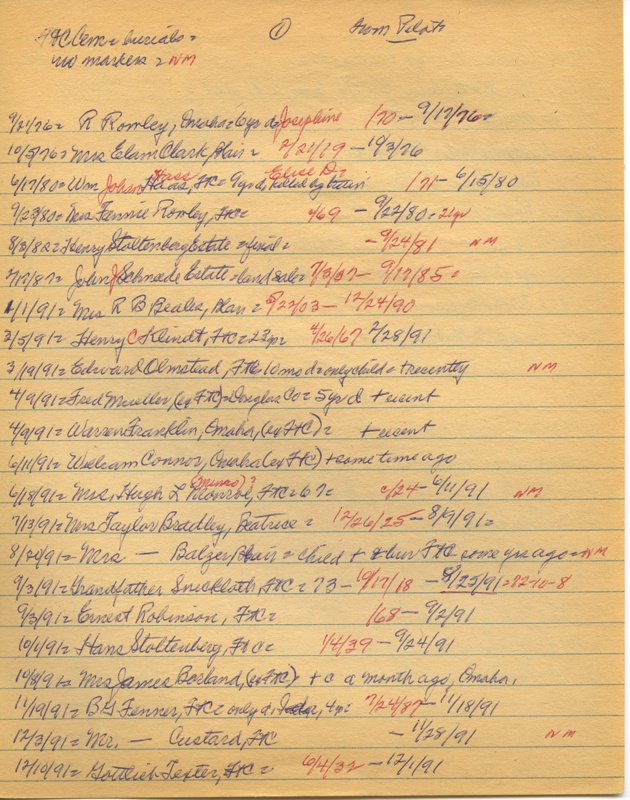 Ft C Cem = burials = ① from Pilot
no markers = NM
9/21/76 = R Rowley, Omaha = 6 yr d. Josephine 1/70 – 9/17/76 =
10/5/76 = Mrs Elam Clark, Blair = 2/27/19 – 10/3/76
6/17/80 = Wm. Johan Haas, Hass FtC = 9 yr d, Elise D = killed by train 1/71 – 6/15/80
9/23/80 = Mrs Fannie Rowley, FtC = 4/69 – 9/22/80 = 21 yr
8/3/82 = Henry Stoltenberg Estate = final = – 9/24/81 NM
7/17/87 = John J Schnede Estate = land sale = 7/3/37 – 9/17/85 =
1/1/91 = Mrs R B Beales, Blair = 5/22/03 – 12/24/90
3/5/91 = Henry C Kleindt, FtC = 23 yr 4/26/67 2/28/91
3/19/91 = Edward Olmstead, FtC 10 mo d = only child = + recently NM
4/9/91 = Fred Mueller, (ex FtC) = Douglas Co = 5 yr d + recent
4/9/91 = Warren Franklin, Omaha, (ex FtC) = + recent
6/11/91 = William Connor, Omaha (ex FtC) + some time ago
6/18/91 = Mrs, Hugh L Monroe, (Munro)? FtC = 67 = c/24 – 6/11/91 NM
7/13/91 = Mrs Taylor Bradley, Beatrice = 12/26/25 – 8/9/91 =
8/20/91 = Mrs — Balzer Blair = child + & bur FtC some yrs ago = NM
9/3/91 = Grandfather Sneckloth, FtC = 73 – 10/17/18 – 8/25/91 = 72-10-8
9/3/91 = Ernest Robinson, FtC = 1/68 – 9/2/91
10/1/91 = Hans Stoltenberg, FtC = 1/4/39 – 9/24/91
10/8/91 = Mrs James Borland, (ex FtC) + c a month ago, Omaha.
11/19/91 = B G Fenner, FtC = only d. 4 yr = 7/24/87 – 11/18/91
12/3/91 = Mr. — Custard, FtC – 11/28/91 NM
12/10/91 = Gottlieb Texter, FtC = 6/4/32 – 12/1/91